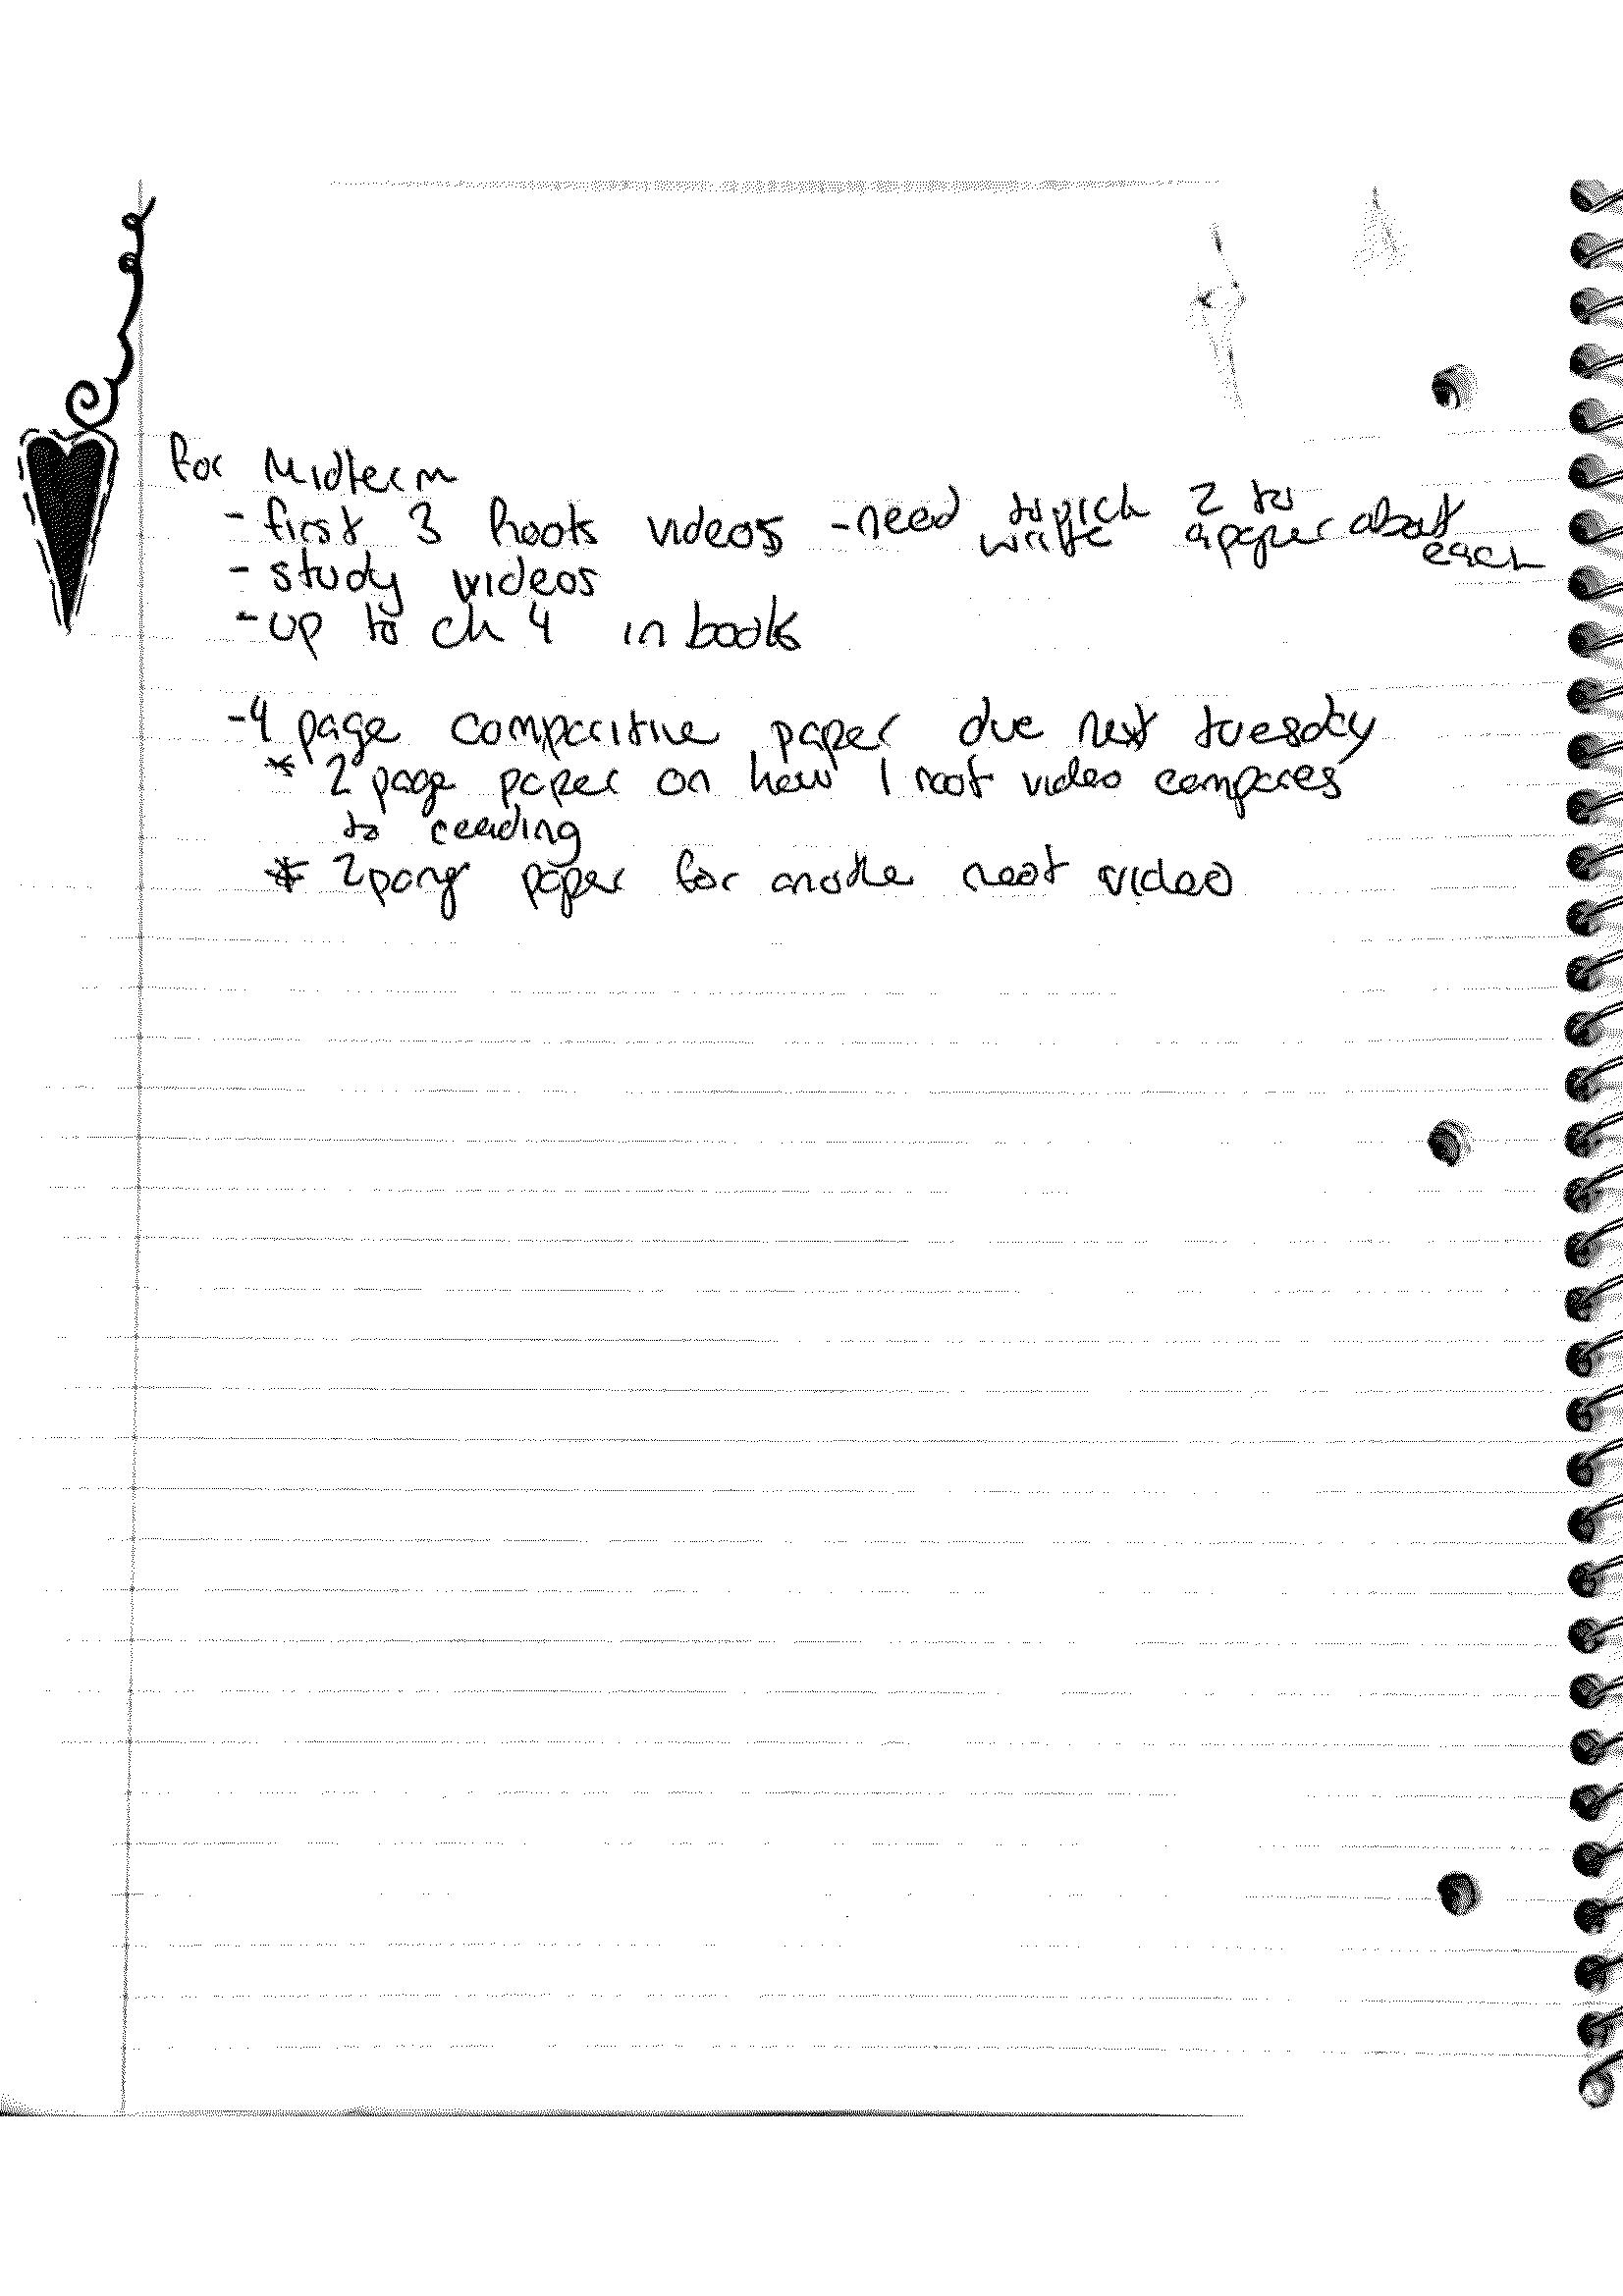 for Midterm
- first 3 Roots videos - need to pick 2 to
write a paper about
each
- study videos
- up to ch 4 in book
- 4 page comparitive paper due next tuesday
* 2 page paper on how 1 root video compares
to reading
* 2 pang paper for anothe root video